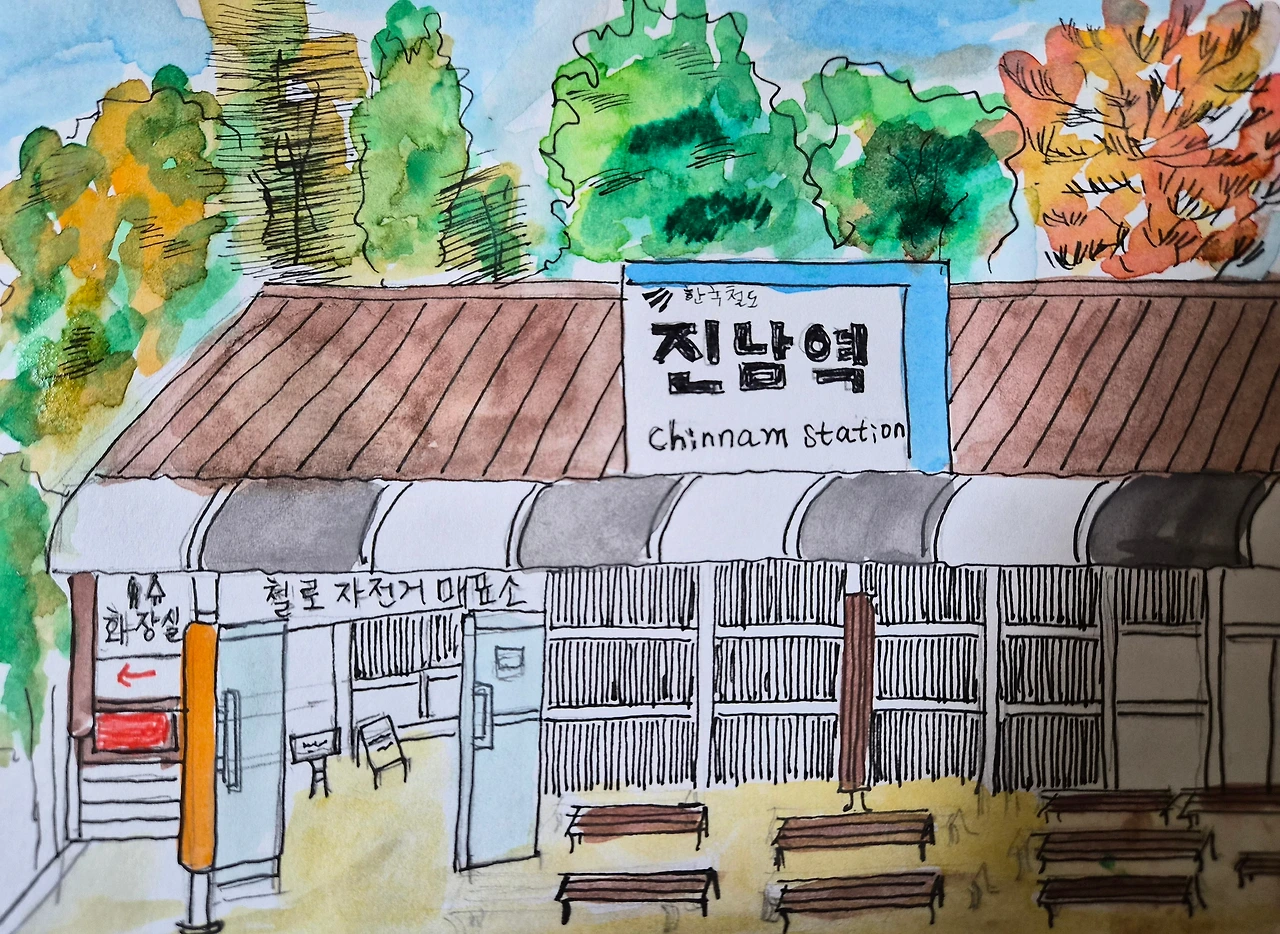 한국철도
진남역
Chinnam station
철로 자전거 매표소
화장실